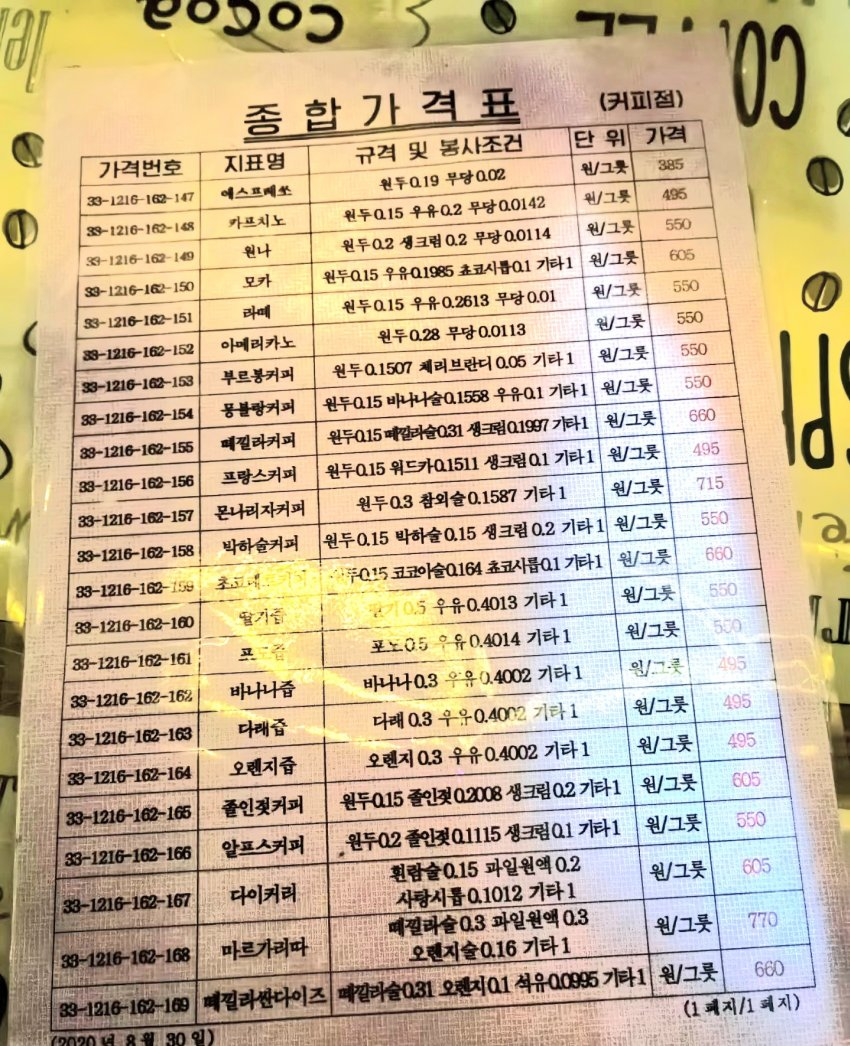 cocoa
종합가격표 (커피점)
가격번호 지표명 규격 및 봉사조건 단위 가격
33-1216-162-147 에스프레쏘 원두0.19 무당0.02 원/그릇 385
33-1216-162-148 카프치노 원두0.15 우유0.2 무당0.0142 원/그릇 495
33-1216-162-149 원나 원두0.2 생크림0.2 무당0.0114 원/그릇 550
33-1216-162-150 모카 원두0.15 우유0.1985 쵸코시롭0.1 기타1 원/그릇 605
33-1216-162-151 라떼 원두0.15 우유0.2613 무당0.01 원/그릇 550
33-1216-162-152 아메리카노 원두0.28 무당0.0113 원/그릇 550
33-1216-162-153 부르봉커피 원두0.1507 체리브란디0.05 기타1 원/그릇 550
33-1216-162-154 몽블랑커피 원두0.15 바나나술0.1558 우유0.1 기타1 원/그릇 550
33-1216-162-155 떼낄라커피 원두0.15 떼낄라술0.31 생크림0.1997 기타1 원/그릇 660
33-1216-162-156 프랑스커피 원두0.15 워드카0.1511 생크림0.1 기타1 원/그릇 495
33-1216-162-157 몬나리자커피 원두0.3 참외술0.1587 기타1 원/그릇 715
33-1216-162-158 박하술커피 원두0.15 박하술0.15 생크림0.2 기타1 원/그릇 550
33-1216-162-159 원두0.15 코코아술0.164 쵸코시롭0.1 기타1 원/그릇 660
33-1216-162-160 딸기즙 딸기0.5 우유0.4013 기타1 원/그릇 550
33-1216-162-161 포도즙 포도0.5 우유0.4014 기타1 원/그릇 550
33-1216-162-162 바나나즙 바나나0.3 우유0.4002 기타1 원/그릇 495
33-1216-162-163 다래즙 다래0.3 우유0.4002 기타1 원/그릇 495
33-1216-162-164 오렌지즙 오렌지0.3 우유0.4002 기타1 원/그릇 495
33-1216-162-165 졸인젖커피 원두0.15 졸인젖0.2008 생크림0.2 기타1 원/그릇 605
33-1216-162-166 알프스커피 원두0.2 졸인젖0.1115 생크림0.1 기타1 원/그릇 550
33-1216-162-167 다이커리 흰람술0.15 과일원액0.2 원/그릇 605
사탕시롭0.1012 기타1
33-1216-162-168 마르가리따 떼낄라술0.3 과일원액0.3 원/그릇 770
오렌지술0.16 기타1
33-1216-162-169 떼낄라싼다이즈 떼낄라술0.31 오렌지0.1 석유0.0995 기타1 원/그릇 660
(1페지/1페지)
(2020년 8월 30일)